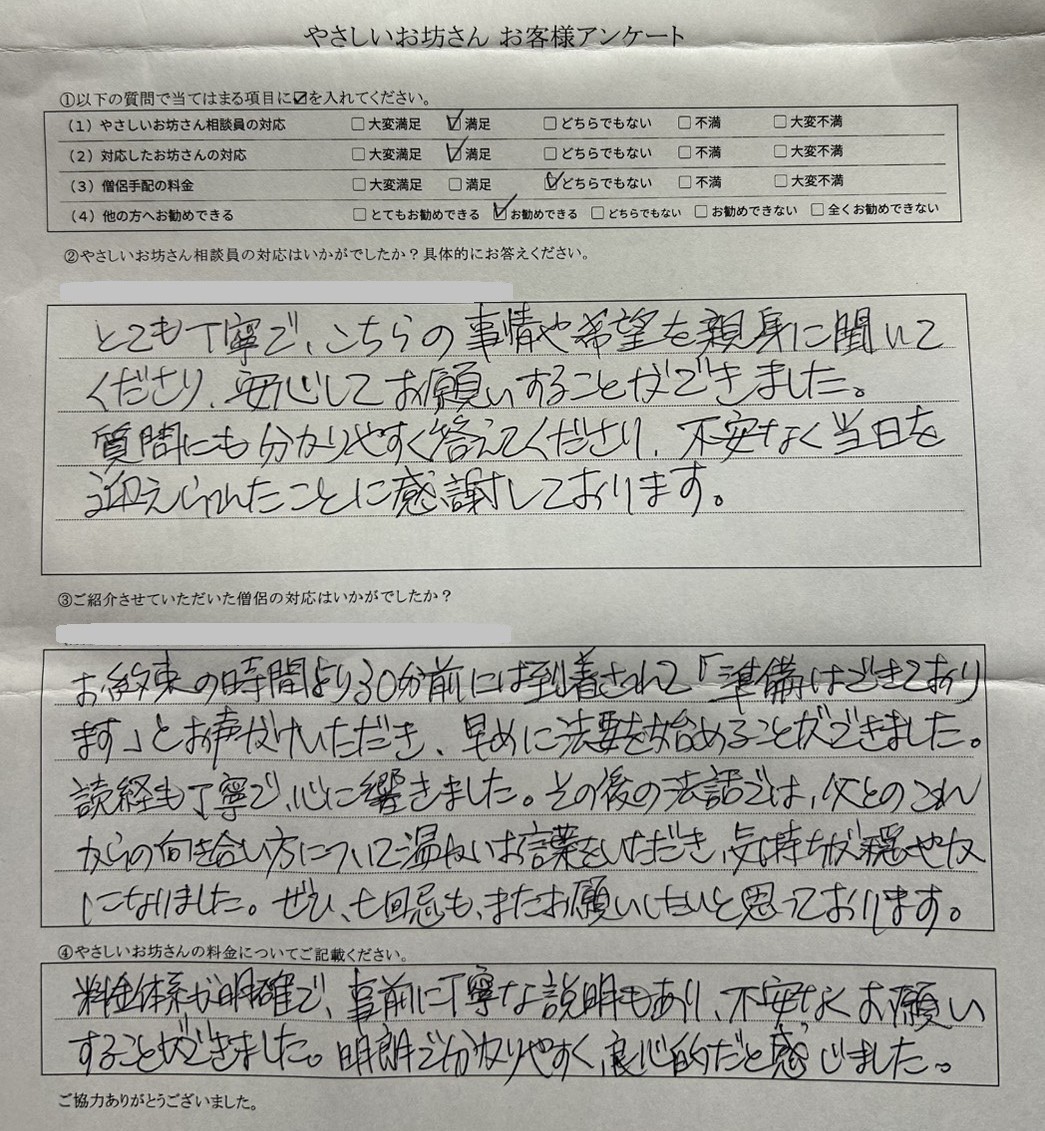 やさしいお坊さん お客様アンケート
①以下の質問で当てはまる項目に☑を入れてください。
（1）やさしいお坊さん相談員の対応 □大変満足 ☑満足 □どちらでもない □不満 □大変不満
（2）対応したお坊さんの対応 □大変満足 ☑満足 □どちらでもない □不満 □大変不満
（3）僧侶手配の料金 □大変満足 □満足 ☑どちらでもない □不満 □大変不満
（4）他の方へお勧めできる □とてもお勧めできる ☑お勧めできる □どちらでもない □お勧めできない □全くお勧めできない
②やさしいお坊さん相談員の対応はいかがでしたか？具体的にお答えください。
とても丁寧で、こちらの事情や希望を親身に聞いて
くださり、安心してお願いすることができました。
質問にも分かりやすく答えてくださり、不安なく当日を
迎えられたことに感謝しております。
③ご紹介させていただいた僧侶の対応はいかがでしたか？
お約束の時間より30分前には到着されて「準備はできており
ます」とお声がけいただき、早めに法要を始めることができました。
読経も丁寧で、心に響きました。その後の法話では、父とのこれ
からの向き合い方について温かいお言葉をいただき、気持ちが穏やか
になりました。ぜひ、七回忌も、またお願いしたいと思っております。
④やさしいお坊さんの料金についてご記載ください。
料金体系が明確で、事前に丁寧な説明もあり、不安なくお願い
することができました。明朗で分かりやすく、良心的だと感じました。
ご協力ありがとうございました。